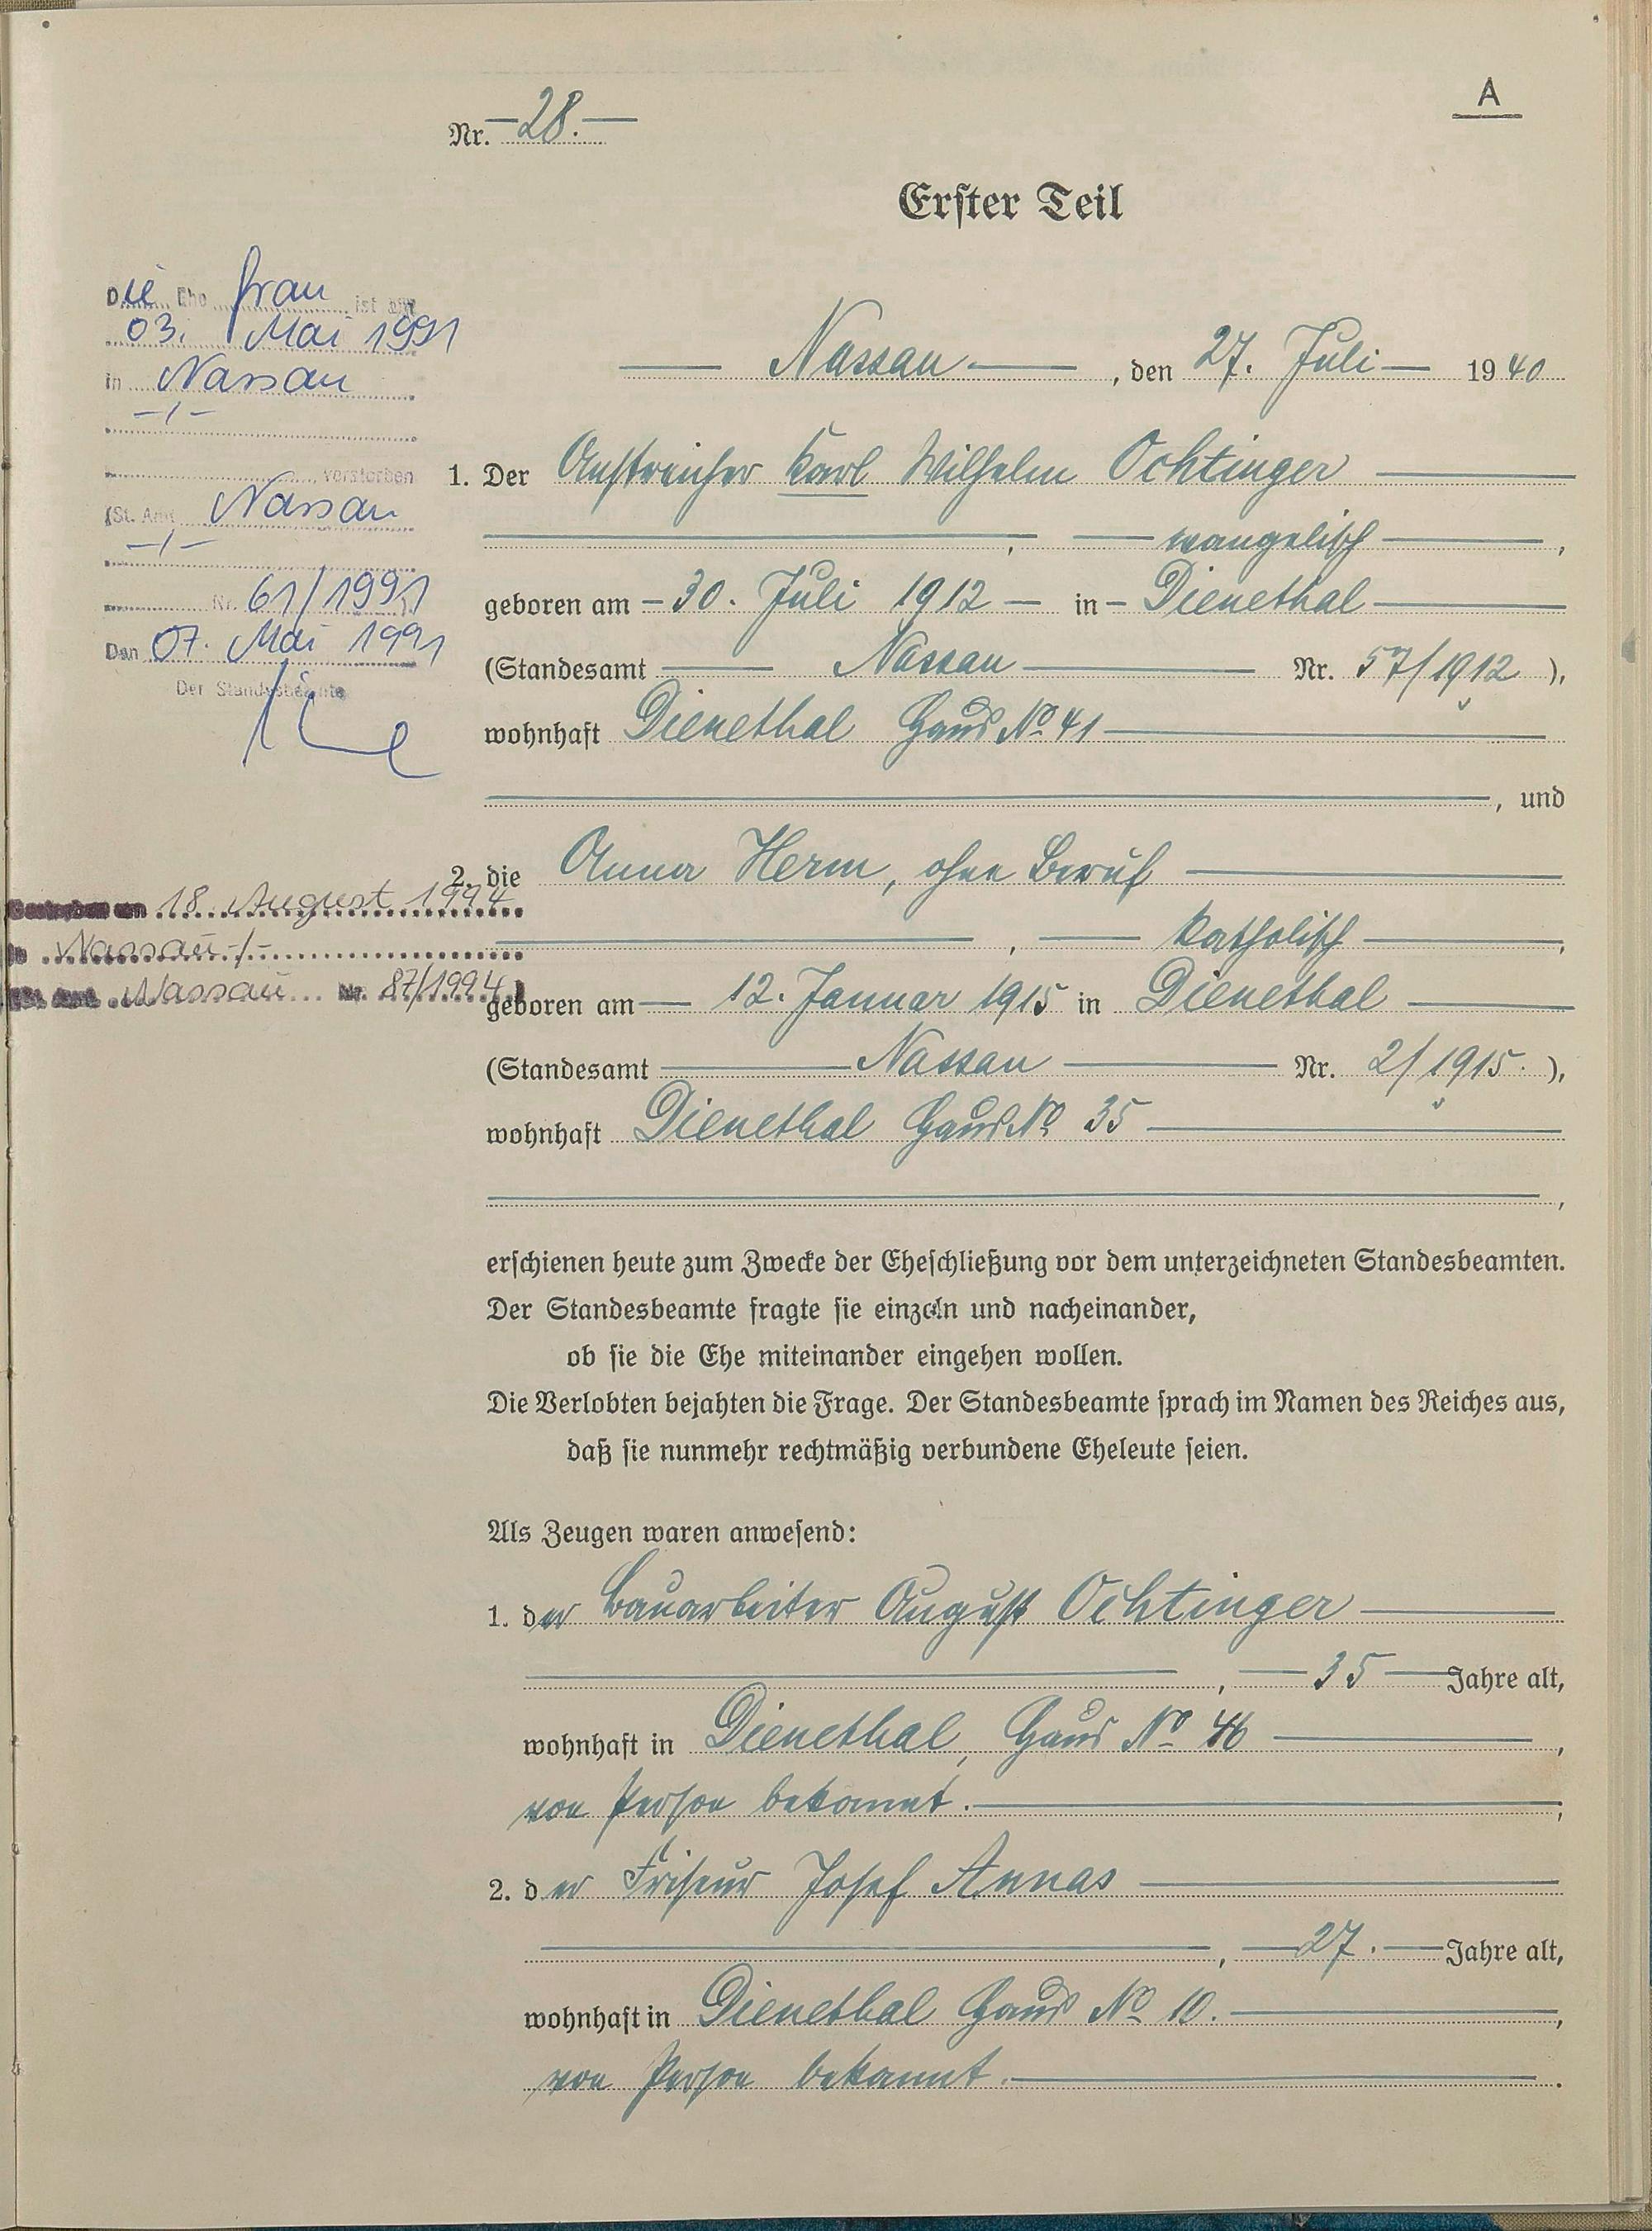 A
Nr. 28.
Erster Teil
Die Ehefrau ist am
03. Mai 1991
in Nassau
verstorben
(St. Amt Nassau
Nr. 61/1991
Den 07. Mai 1991
Der Standesbeamte
Nassau, den 27. Juli 1940
1. Der Anstreicher Karl Wilhelm Ochtinger
, evangelisch,
geboren am 30. Juli 1912 in Dienethal
(Standesamt Nassau Nr. 57/1912),
wohnhaft Dienethal Haus No 41
, und
2. die Anna Herm, ohne Beruf
, katholisch,
Gestorben am 18. August 1994
in Nassau
(St. Amt Nassau Nr. 87/1994)
geboren am 12. Januar 1915 in Dienethal
(Standesamt Nassau Nr. 2/1915.),
wohnhaft Dienethal Haus No 35
,
erschienen heute zum Zwecke der Eheschließung vor dem unterzeichneten Standesbeamten.
Der Standesbeamte fragte sie einzeln und nacheinander,
ob sie die Ehe miteinander eingehen wollen.
Die Verlobten bejahten die Frage. Der Standesbeamte sprach im Namen des Reiches aus,
daß sie nunmehr rechtmäßig verbundene Eheleute seien.
Als Zeugen waren anwesend:
1. der Bauarbeiter August Ochtinger
, 35 Jahre alt,
wohnhaft in Dienethal, Haus No 46,
von Person bekannt.;
2. der Friseur Josef Annas
, 27. Jahre alt,
wohnhaft in Dienethal Haus No 10.,
von Person bekannt.